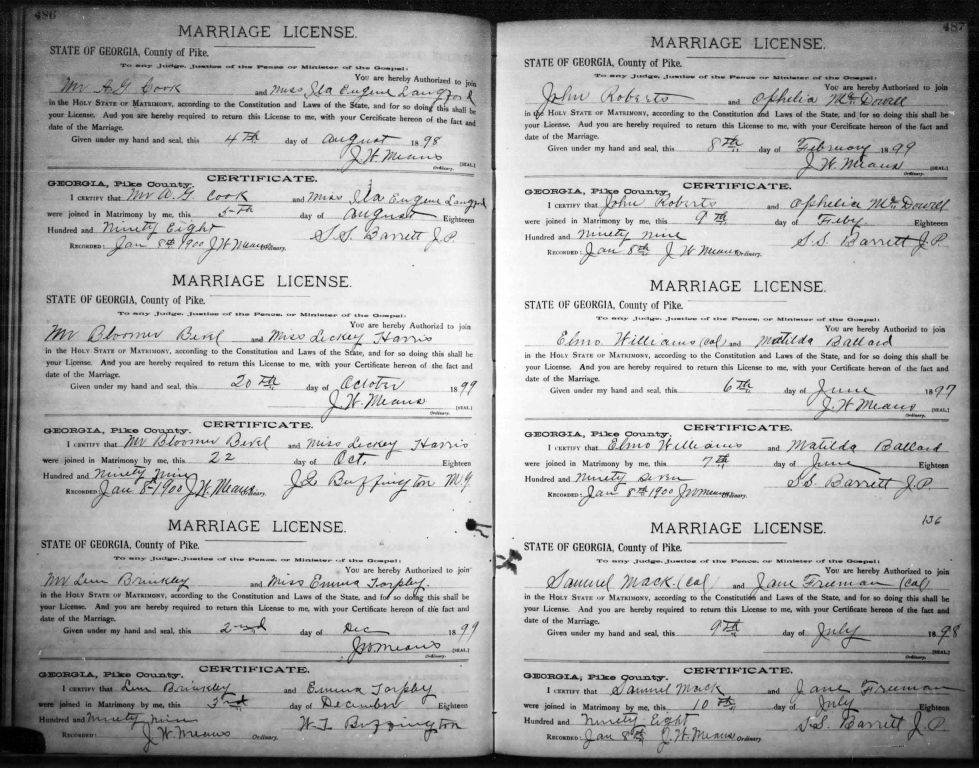 486
MARRIAGE LICENSE.
STATE OF GEORGIA, County of Pike.
To any Judge, Justice of the Peace or Minister of the Gospel:
You are hereby Authorized to join
Mr A G Cook and Miss Ila Eugene Langford
in the HOLY STATE OF MATRIMONY, according to the Constitution and Laws of the State, and for so doing this shall be
your License. And you are hereby required to return this License to me, with your Certificate hereon of the fact and
date of the Marriage.
Given under my hand and seal, this 4th day of August 1898
J. W. Means [SEAL.]
Ordinary.
CERTIFICATE.
GEORGIA, Pike County.
I CERTIFY that Mr A. G Cook and Miss Ila Eugene Langford
were joined in Matrimony by me, this 5th day of August Eighteen
Hundred and Ninety Eight S. S. Barrett J. P.
RECORDED: Jan 8th 1900 J W Means Ordinary.
MARRIAGE LICENSE.
STATE OF GEORGIA, County of Pike.
To any Judge, Justice of the Peace, or Minister of the Gospel:
You are hereby Authorized to join
Mr Bloomer Bevel and Miss Leckey Harris
in the HOLY STATE OF MATRIMONY, according to the Constitution and Laws of the State, and for so doing this shall be
your License. And you are hereby required to return this License to me, with your Certificate hereon of the fact and
date of the Marriage.
Given under my hand and seal, this 20th day of October 1899
J. W. Means [SEAL.]
Ordinary.
CERTIFICATE.
GEORGIA, Pike County.
I CERTIFY that Mr Bloomer Bevel and Miss Leckey Harris
were joined in Matrimony by me, this 22 day of Oct. Eighteen
Hundred and Ninety Nine Buffington M. G.
RECORDED: Jan 8 1900 J. W. Means Ordinary.
MARRIAGE LICENSE.
STATE OF GEORGIA, County of Pike.
To any Judge, Justice of the Peace, or Minister of the Gospel:
You are hereby Authorized to join
Mr Lem Brinkley and Miss Emma Torpley
in the HOLY STATE OF MATRIMONY, according to the Constitution and Laws of the State, and for so doing this shall be
your License. And you are hereby required to return this License to me, with your Certificate hereon of the fact and
date of the Marriage.
Given under my hand and seal, this 2nd day of Dec 1899
J W Means [SEAL.]
Ordinary.
CERTIFICATE.
GEORGIA, Pike County.
I CERTIFY that Lem Brinkley and Emma Torpley
were joined in Matrimony by me, this 3rd day of December Eighteen
Hundred and Ninety Nine Buffington
RECORDED: J. W. Means Ordinary.
487
MARRIAGE LICENSE.
STATE OF GEORGIA, County of Pike.
To any Judge, Justice of the Peace or Minister of the Gospel:
You are hereby Authorized to join
John Roberts and Ophelia McDowell
in the HOLY STATE OF MATRIMONY, according to the Constitution and Laws of the State, and for so doing this shall be
your License. And you are hereby required to return this License to me, with your Cercificate hereon of the fact and
date of the Marriage.
Given under my hand and seal, this 8th day of February 1899
J. W. Means [SEAL.]
Ordinary.
CERTIFICATE.
GEORGIA, Pike County.
I CERTIFY that John Roberts and Ophelia McDowell
were joined in Matrimony by me, this 9th day of Feby. Eighteen
Hundred and Ninety Nine S. S. Barrett J. P.
RECORDED: Jan 8th J W Means Ordinary.
MARRIAGE LICENSE.
STATE OF GEORGIA, County of Pike.
To any Judge, Justice of the Peace, or Minister of the Gospel:
You are hereby Authorized to join
Elmo Williams (col) and Matilda Ballard
in the HOLY STATE OF MATRIMONY, according to the Constitution and Laws of the State, and for so doing this shall be
your License. And you are hereby required to return this License to me, with your Certificate hereon of the fact and
date of the Marriage.
Given under my hand and seal, this 6th day of June 1897
J. W. Means [SEAL.]
Ordinary.
CERTIFICATE.
GEORGIA, Pike County.
I CERTIFY that Elmo Williams and Matilda Ballard
were joined in Matrimony by me, this 7th day of June Eighteen
Hundred and Ninety Seven S. S. Barrett J. P.
RECORDED: Jan 8th 1900 J W Means Ordinary.
136
MARRIAGE LICENSE.
STATE OF GEORGIA, County of Pike.
To any Judge, Justice of the Peace, or Minister of the Gospel:
You are hereby Authorized to join
Samuel Mack (Col) and Jane Freeman (Col)
in the HOLY STATE OF MATRIMONY, according to the Constitution and Laws of the State, and for so doing this shall be
your License. And you are hereby required to return this License to me, with your Certificate hereon of the fact and
date of the Marriage.
Given under my hand and seal, this 9th day of July 1898
[SEAL.]
Ordinary.
CERTIFICATE.
GEORGIA, Pike County.
I CERTIFY that Samuel Mack and Jane Freeman
were joined in Matrimony by me, this 10th day of July Eighteen
Hundred and Ninety Eight S. S. Barrett J. P.
RECORDED: Jan 8th J. W. Means Ordinary.